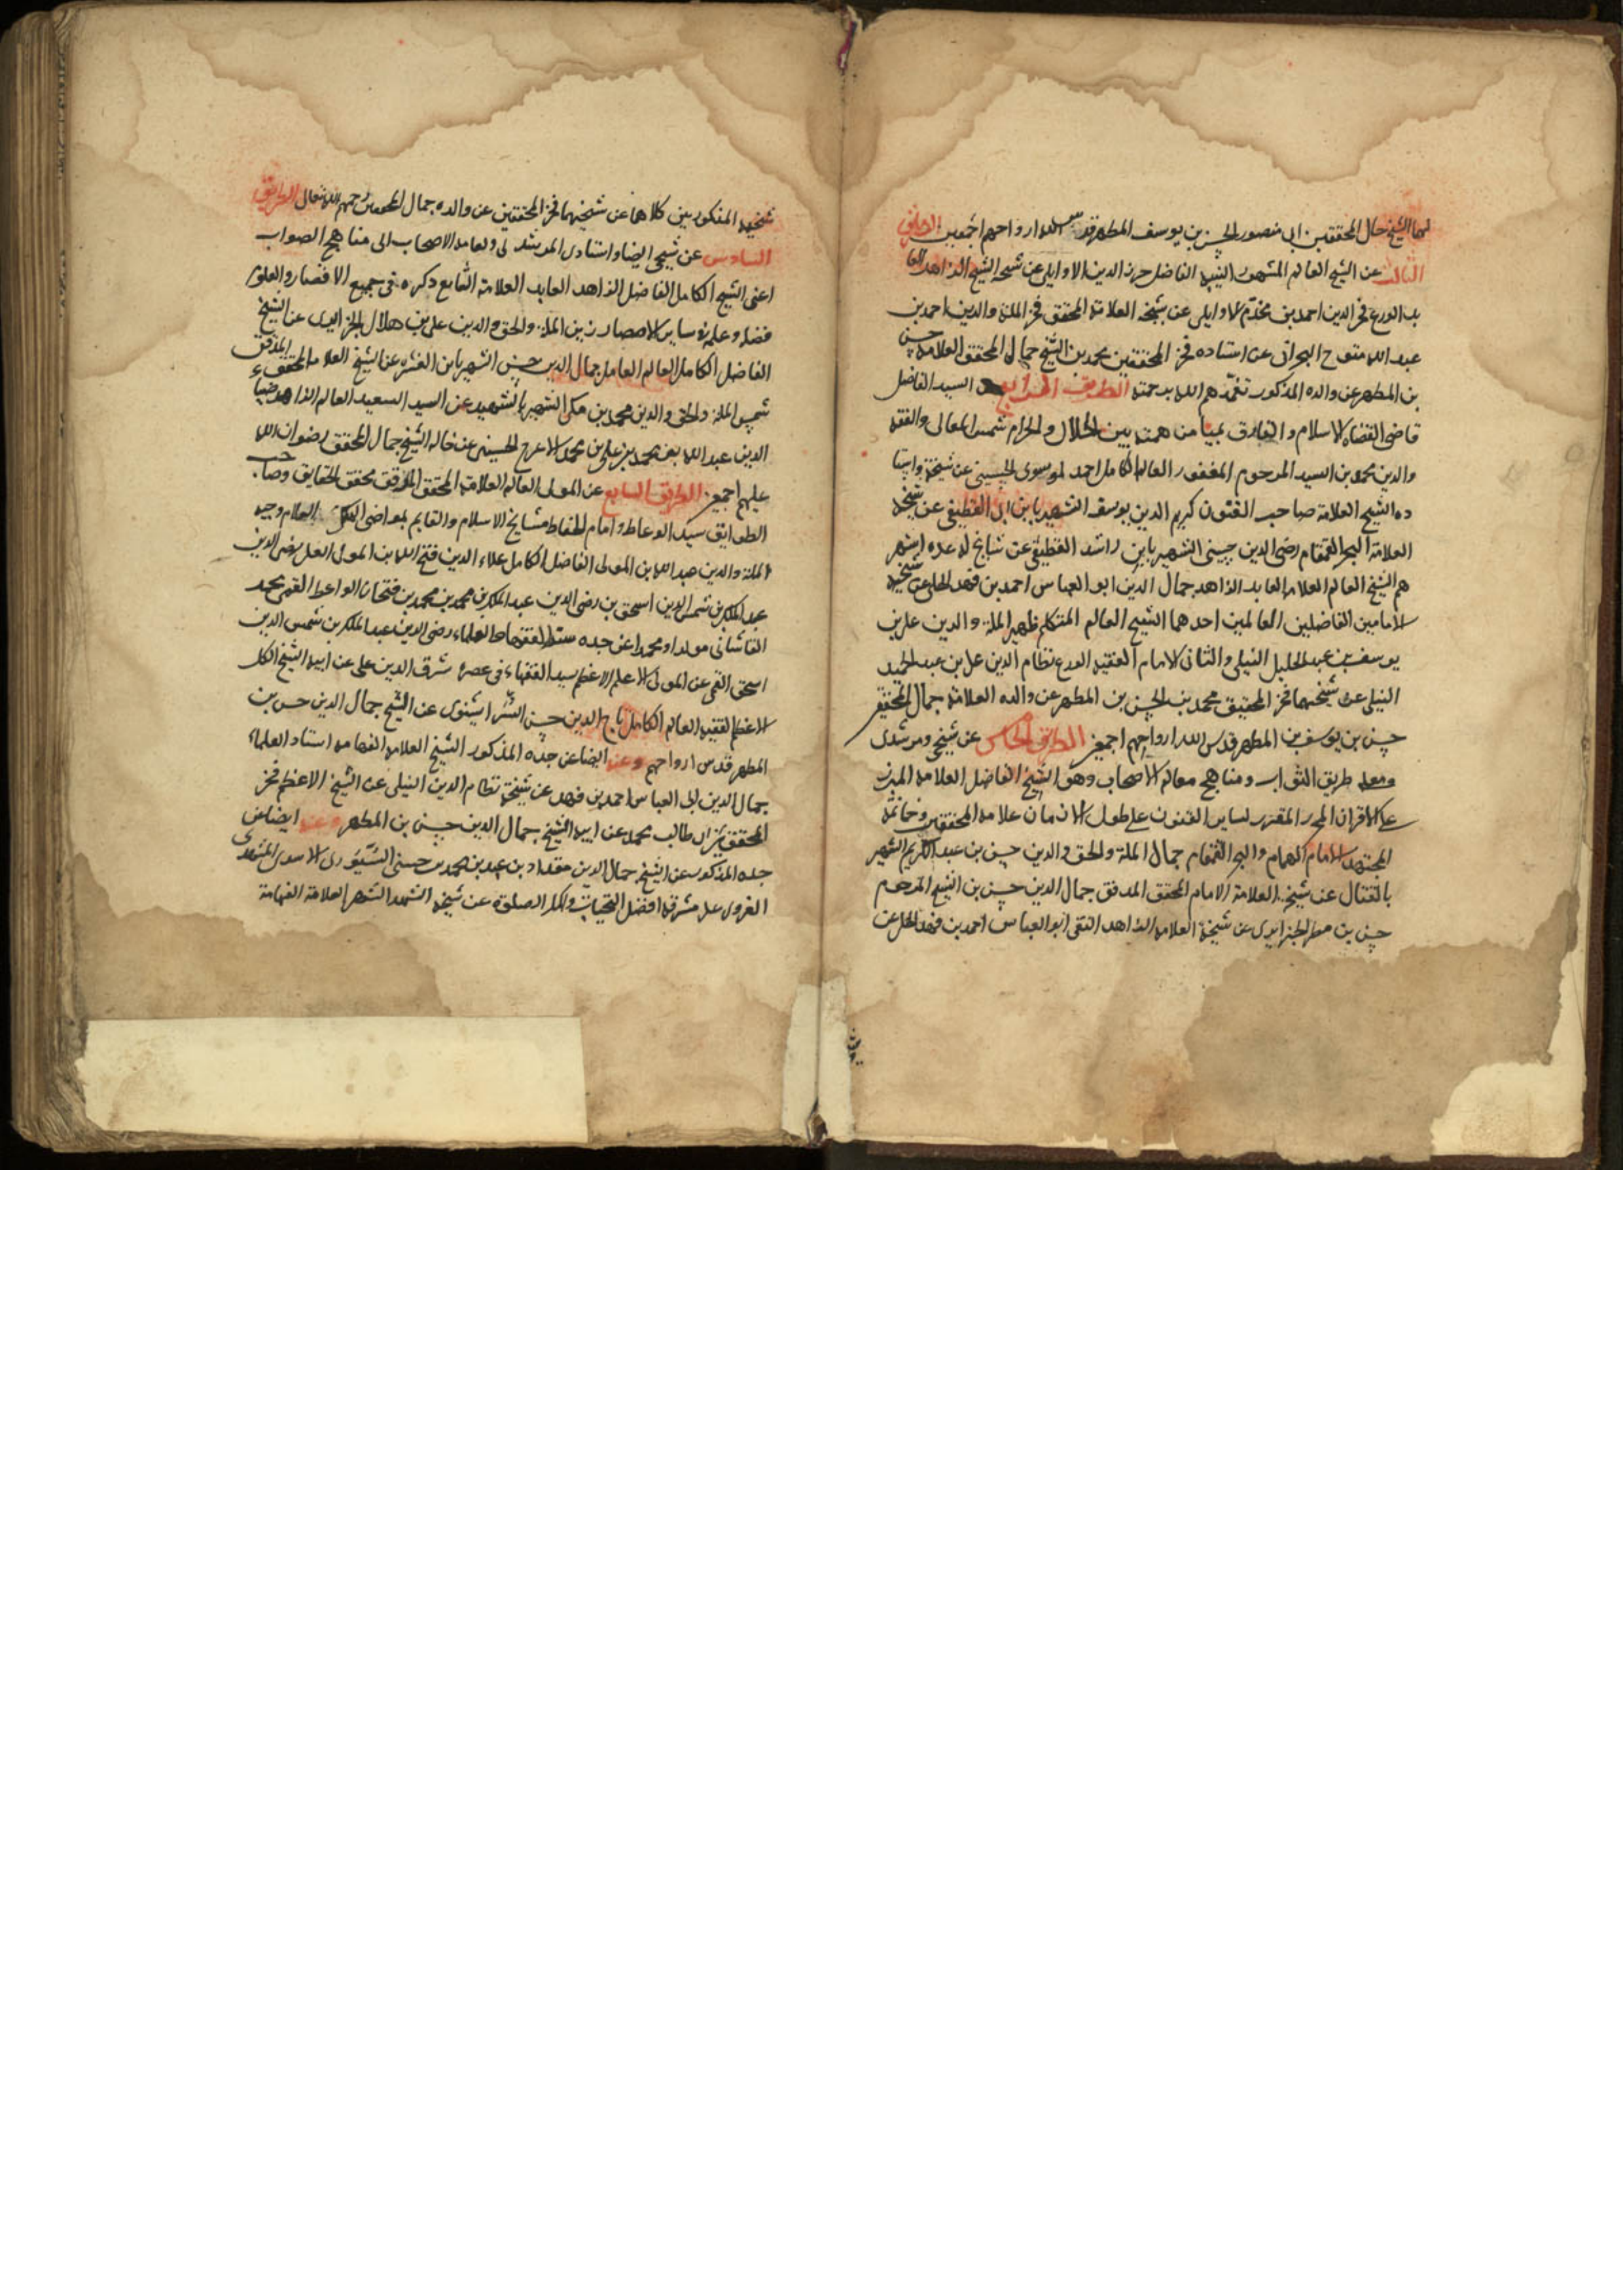 لهما الشيخ جمال المحققين ابى منصور الحسن بن يوسف المطهر قدس الله ارواحهم اجمعين الطريق
الثالث عن الشيخ العالم المشهور النبيه الفاضل حرز الدين الاوايلى عن شيخه الشيخ الزاهد العا
بد الورع فخر الدين احمد بن مخدم الاوايلى عن شيخه العلامة المحقق فخر الملة والدين احمد بن
عبد الله متوج البحرانى عن استاده فخر المحققين محمد بن الشيخ جمال المحقق العلامة حسن
بن المطهر عن والده المذكور تغمدهم الله برحمته الطريق الرابع السيد الفاضل
قاضى القضاة الاسلام والفارق بميامن همته بين الحلال والحرام شمس المعالى والفقه
والدين محمد بن السيد المرحوم المغفور العالم الكامل احمد الموسوى الحسينى عن شيخه واستا
ده الشيخ العلامة صاحب الفنون كريم الدين يوسف الشهير بابن ابى القطيفى عن شيخه
العلامة البحر القمقام رضى الدين حسين الشهير بابن راشد القطيفى عن مشايخ له عده اشهر
هم الشيخ العالم العلامة العابد الزاهد جمال الدين ابو العباس احمد بن فهد الحلى عن شيخيه
الامامين الفاضلين العالمين احدهما الشيخ العالم المتكلم ظهير الملة والدين على بن
يوسف بن عبد الجليل النيلى والثانى الامام الفقيه الورع نظام الدين على بن عبد الحميد
النيلى عن شيخهما فخر المحققين محمد بن الحسن بن المطهر عن والده العلامة جمال المحققين
حسن بن يوسف بن المطهر قدس الله ارواحهم اجمعين الطريق الخامس عن شيخى ومرشدى
ومعلم طريق الثواب ومناهج معالم الاصحاب وهو الشيخ الفاضل العلامة المبرز
على الاقران المحرر المقرر لساير الفنون على طول الازمان علامة المحققين وخاتمة
المجتهدين الامام الهمام والبحر القمقام جمال الملة والحق والدين حسن بن عبد الكريم الشهير
بالفتال عن شيخه العلامة الامام المحقق المدقق جمال الدين حسن بن الشيخ المرحوم
حسين بن مطر الجزايرى عن شيخه العلامة الزاهد التقى ابو العباس احمد بن فهد الحلى عن
شيخيه المذكورين كلاهما عن شيخهما فخر المحققين عن والده جمال المحققين رحمهم الله تعالى الطريق
السادس عن شيخى ايضا واستادى المرشد لى ولعامة الاصحاب الى مناهج الصواب
اعنى الشيخ الكامل الفاضل الزاهد العابد العلامة الشايع ذكره فى جميع الاقصار والعلوم
فضله وعلمه ساير الامصار زين الملة والحق والدين على بن هلال الجزايرى عن الشيخ
الفاضل الكامل العالم العامل جمال الدين حسن الشهير بابن العشره عن الشيخ العلامة المحقق المدقق
شمس الملة والحق والدين محمد بن مكى الشهير بالشهيد عن السيد السعيد العالم الزاهد ضيا
الدين عبد الله بن محمد بن على بن محمد الاعرج الحسينى عن خاله الشيخ جمال المحقق رضوان الله
عليهم اجمعين الطريق السابع عن المولى العالم العلامة المحقق المدقق محقق الحقايق وصاحب
الطوايق سيد الوعاظ وامام الحفاظ مشايخ الاسلام والقايم بمراضى الملك العلام وجيه
الملة والدين عبد الله بن المولى الفاضل الكامل علاء الدين فتح الله بن المولى العلى رضى الدين
عبد الملك بن شمس الدين اسحق بن رضى الدين عبد الملك بن محمد بن محمد بن فتحان الواعظ القمى محتد
القاشانى مولدا ومحمدا عن جده سند الفقها والعلماء رضى الدين عبد الملك بن شمس الدين
اسحق القمى عن المولى الاعلم الاعظم سيد الفقهاء فى عصره شرف الدين على عن ابيه الشيخ الكل
الاعظم الفقيه العالم الكامل تاج الدين حسن السرابشنوى عن الشيخ جمال الدين حسن بن
المطهر قدس ارواحهم وعنه ايضا عن جده المذكور الشيخ العلامة الفهامة استاد العلماء
جمال الدين ابى العباس احمد بن فهد عن شيخه نظام الدين النيلى عن الشيخ الاعظم فخر
المحققين ابى طالب محمد عن ابيه الشيخ جمال الدين حسن بن المطهر وعنه ايضا عن
جده المذكور عن الشيخ جمال الدين مقداد بن عبد بن محمد بن حسين السيورى الاسدى المشهدى
الغروى على مشرفه افضل التحيات واكمل الصلوة عن شيخه الشهيد الشهير العلامة الفهامة